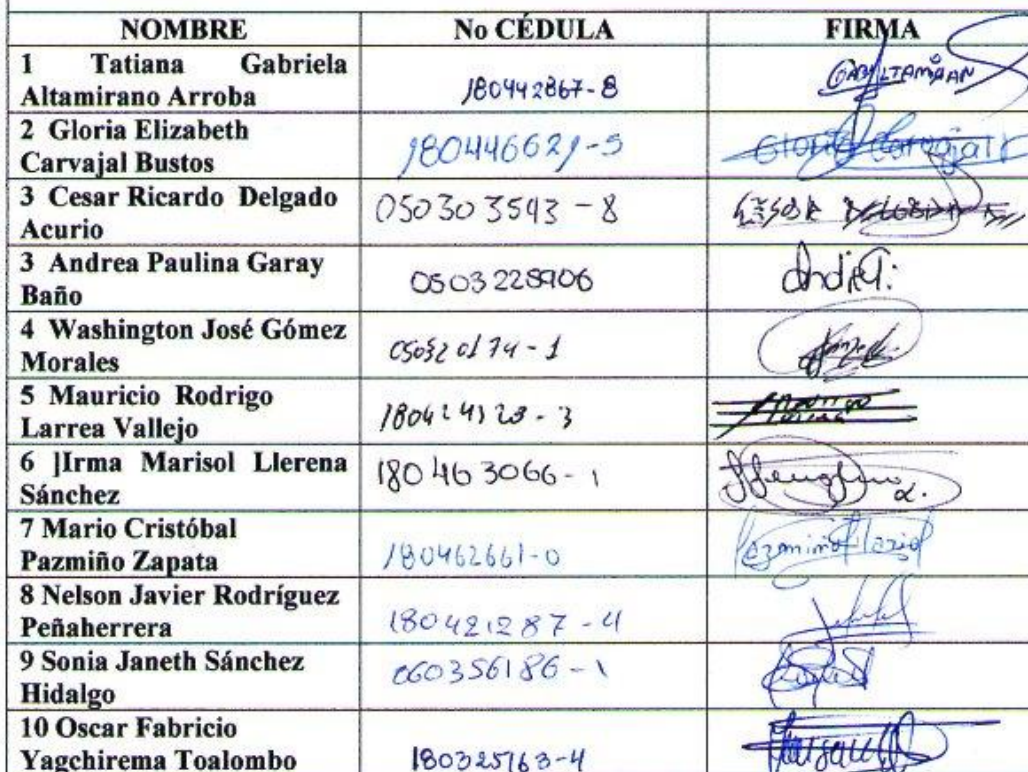 NOMBRE No CÉDULA FIRMA
1 Tatiana Gabriela
Altamirano Arroba 180442867-8
2 Gloria Elizabeth
Carvajal Bustos 180446621-5 Gloria Carvajal
3 Cesar Ricardo Delgado
Acurio 050303543-8
3 Andrea Paulina Garay
Baño 0503228906
4 Washington José Gómez
Morales 050320174-1
5 Mauricio Rodrigo
Larrea Vallejo 180424123-3
6 ]Irma Marisol Llerena
Sánchez 180463066-1
7 Mario Cristóbal
Pazmiño Zapata 180462661-0 Pazmiño Mario
8 Nelson Javier Rodríguez
Peñaherrera 180421287-4
9 Sonia Janeth Sánchez
Hidalgo 060356186-1
10 Oscar Fabricio
Yagchirema Toalombo 180325163-4